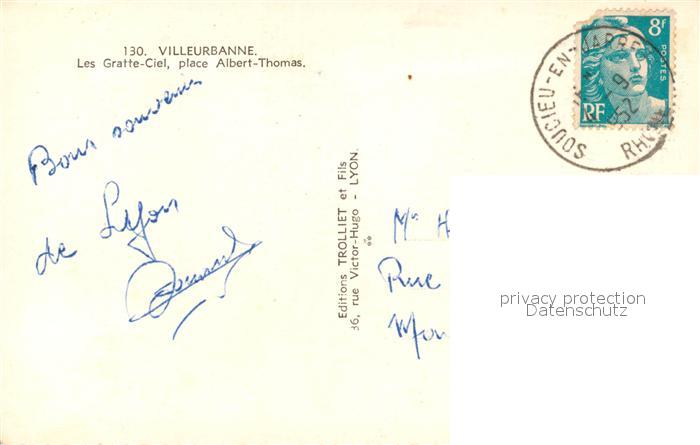 130. VILLEURBANNE.
Les Gratte-Ciel, place Albert-Thomas.
Bons souvenirs
de Lyon
Editions TROLLIET et Fils
36, rue Victor-Hugo - LYON.
8f
POSTES
RF
SOUCIEU-EN-JARREST
9
1952
RHONE
Mr H
Rue
Mon
privacy protection
Datenschutz